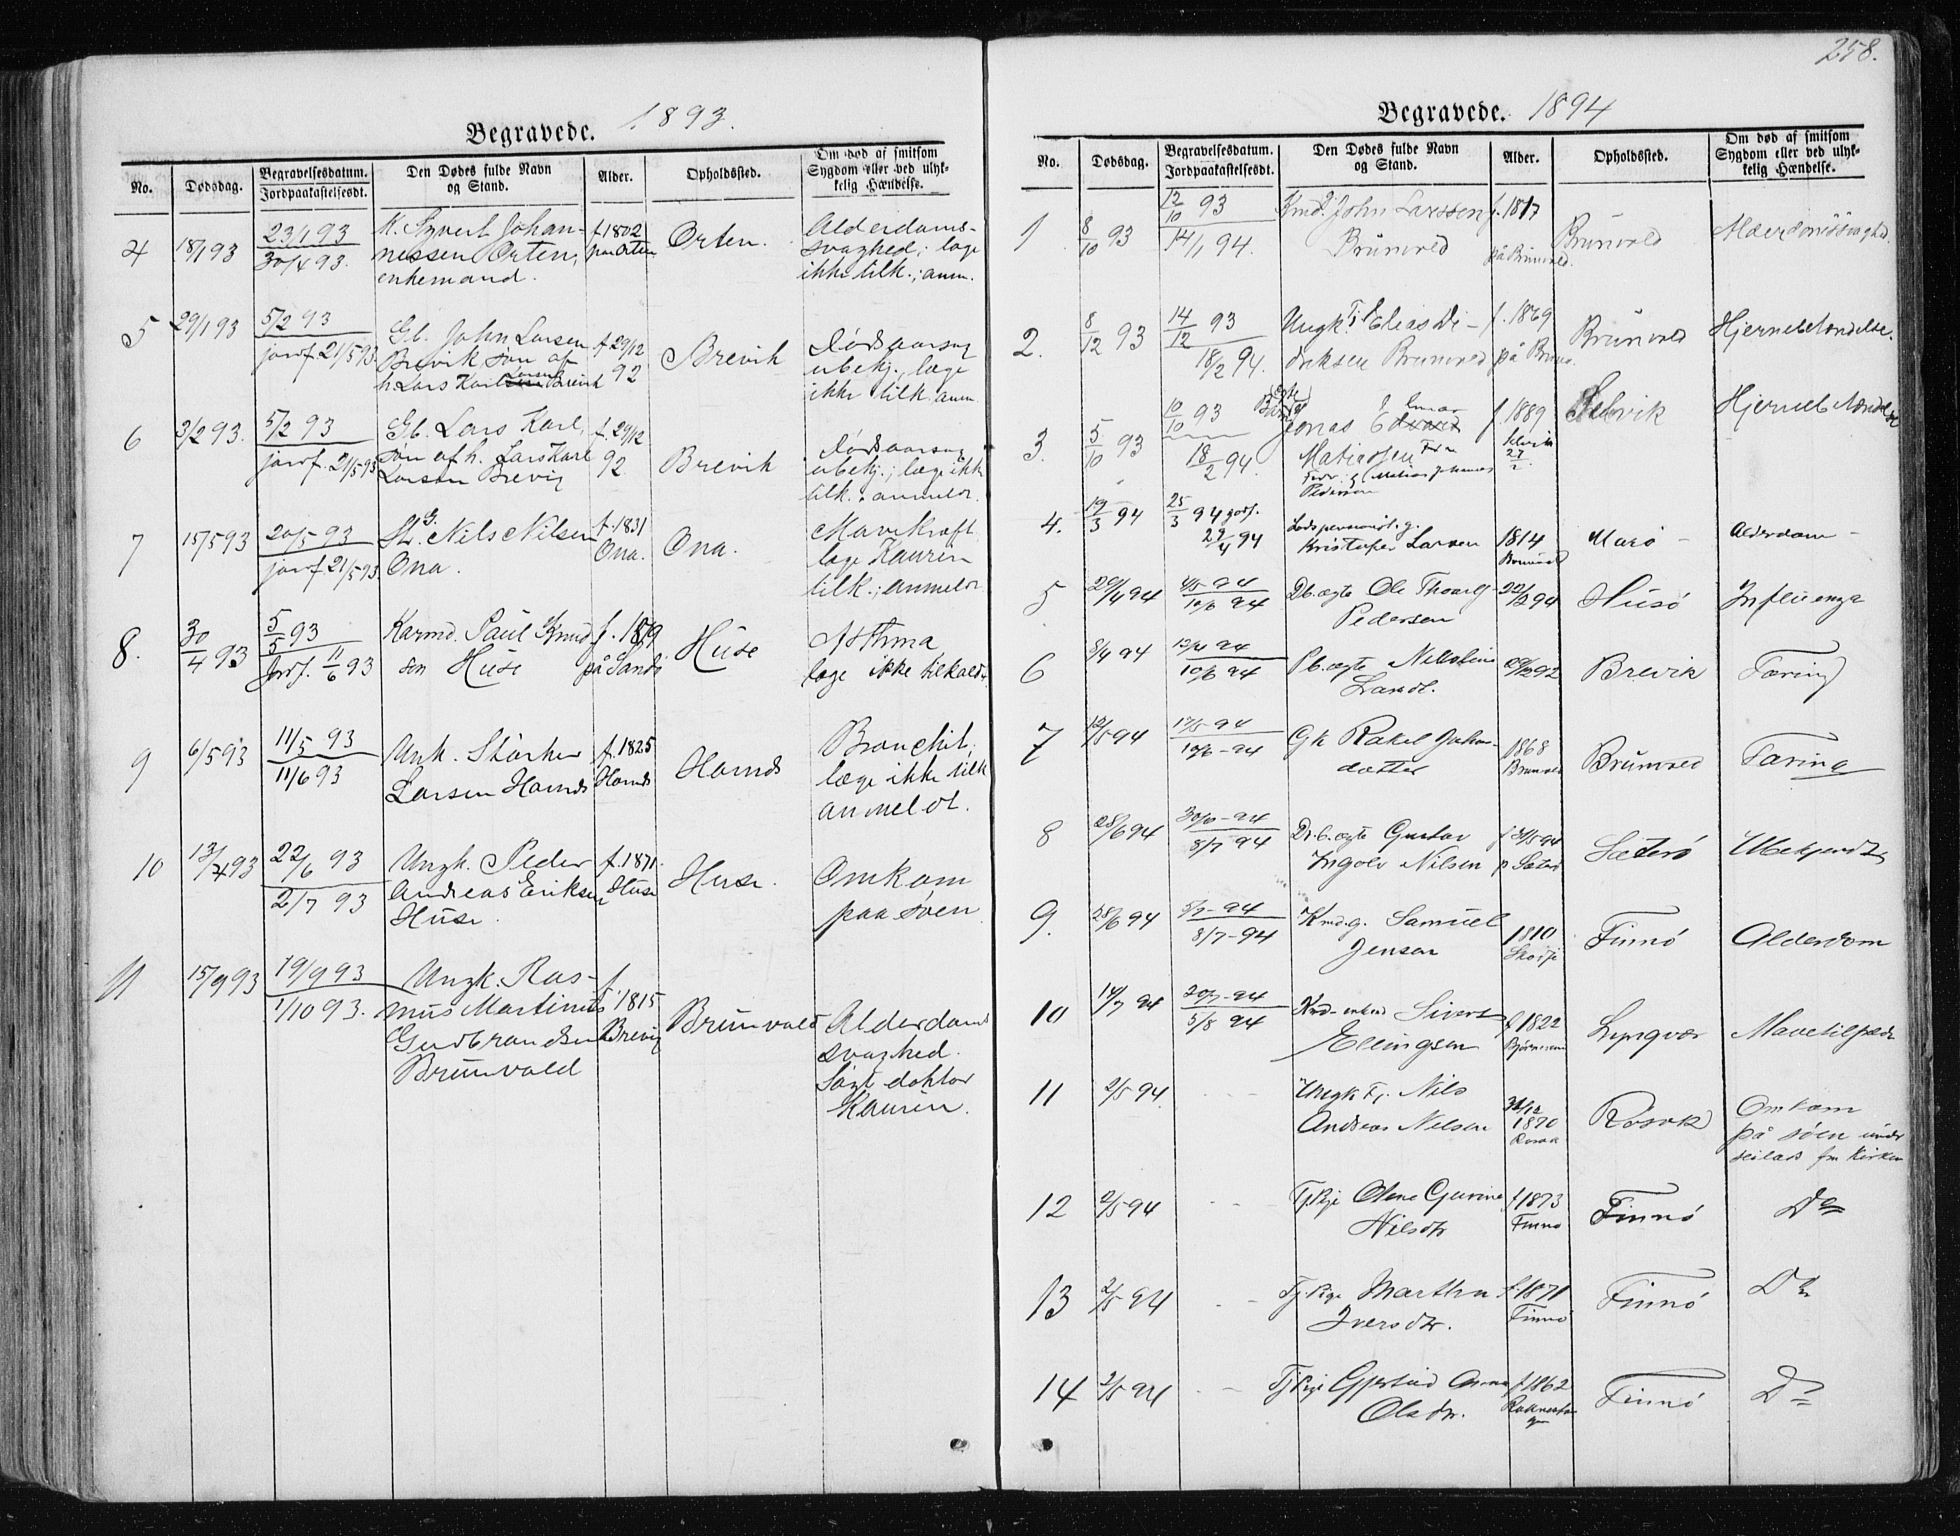 258.
Begravede. 1893.
No.
Dødsdag.
Begravelsesdatum.
Jordpaakastelsesdt.
Den Dødes fulde Navn
og Stand.
Alder.
Opholdssted.
Om død af smitsom
Sygdom eller ved ulyk-
kelig Hændelse.
4 18/1 93 23/1 93
30/4 93.
K. Syvert Johan-
nessen Orten,
enkemand.
f. 1802
paa Orten
Orten.
Alderdoms-
svaghed; læge
ikke tilk.; anm.
5 29/1 93 5/2 93
jordf. 21/5 93
Gb. John Larsen
Brevik søn af
h Lars Karl Larsen Brevik
f. 29/12
92
Brevik
Dødsaarsag
ubekj., læge
ikke tilk. anm
6 3/2 93. 5/2 93
jordf. 21/5 93
Gb. Lars Karl,
søn af h. Lars Karl
Larsen Brevig
f. 29/12
92
Brevik
Dødsaarsag
ubekj.; læge ikke
tilk. anmeldt.
7 15/5 93 20/5 93
jordf 21/5 93
G. Nils Nilsen
Ona.
f. 1831
Ona.
Ona.
Mavekræft
læge Kaurin
tilk.; anmeldt
8. 30/4 93 5/5 93
Jordf. 11/6 93
Karmd. Paul Knud
sen Huse
på Sandø
Huse
Asthma
læge ikke tilkaldt.
9 6/5 93 11/5 93
11/6 93
Unk. Størker
Larsen Harnes
f. 1825
Harnes
Harnes
Bronchit,
læge ikke tilk
anmeldt.
10 13/4 93 22/6 93
2/7 93
Ungk. Peder
Andreas Eriksen
Huse.
f. 1871.
Huse
Huse.
Omkom
paa søen
11 15/9 93 19/9 93
1/10 93.
Ungk. Ras-
mus Martinus
Gudbrandsen
Brunvold
f.
1815
Brevig
Brunvold
Alderdoms
svaghed.
Søgt doktor
Kaurin.
Begravede. 1894
No.
Dødsdag.
Begravelsesdatum.
Jordpaakastelsesdt.
Den Dødes fulde Navn
og Stand.
Alder.
Opholdssted.
Om død af smitsom
Sygdom eller ved ulyk-
kelig Hændelse.
1 8/10 93 12/10 93
14/1 94.
Kmd. John Larssen
Brunvold
f. 1817
på Brunvold.
Brunvold
Alderdomssvaghd.
2. 8/12 93 14/12 93
18/2 94.
Ungk. Elias Di-
driksen Brunvold
f. 1869
på Brunv.
Brunvold
Hjernebetændelse.
3. 5/10 93 10/10 93
18/2 94.
Jonas Edvard
Einar
Matiassen
Matias Johannes
Pedersen
f. 1889
Selvik
Selvik
Hjernebetændelse
4. 19/3 94 25/3 94 jordf.
29/4 94
Lodspensionist. g.
Kristofer Larsen
1814
Brunvold
Husø
Alderdom
5 29/4 94 4/5 94
10/6 94
Db. ægte Ole Thorvald
Pedersen
22/2 94
Husø
Influenza
6 8/4 94 12/4 94
10/6 94
Pb. ægte Nikoline
Larsdt.
29/12 92
Brevik
Tæring
7 12/5 94 17/5 94
10/6 - 94
Gk Rakel Johan-
datter
1868
Brunvold
Brunvold
Tæring
8 28/6 94 30/6 - 94
8/7 94
Db. ægte Gustav
Ingolv Nilsen
f 31/5 94
p Sæterø
Sæterø
Ubekjendt
9. 28/6 94 5/7 - 94
8/7 - 94
Kmd. g. Samuel
Jensen
1810
Finnø
Alderdom
10 14/7 94 20/7 - 94
5/8 94
Kmd - enkmd Sivert
Ellingsen
f 1822
Lyngvær
Mavetilfælde
11 2/5 94
Ungk. Fj. Nils
Andreas Nilsen
31/12
1870
Rosok
Rosok
Omkom
på søen under
seilads fra Kirken
12 2/5 94
Tj. Pige Oline Gurine
Nilsdtr
f 1873
Finnø
Finnø
Do
13 2/5 94
Tj. Pige Martha
Iversdtr.
f 1871
Finnø
Finnø
Do
14 2/5 94
Tj Pige Gjertrud Anna
Olsdtr.
f 1862
Finnø
Do